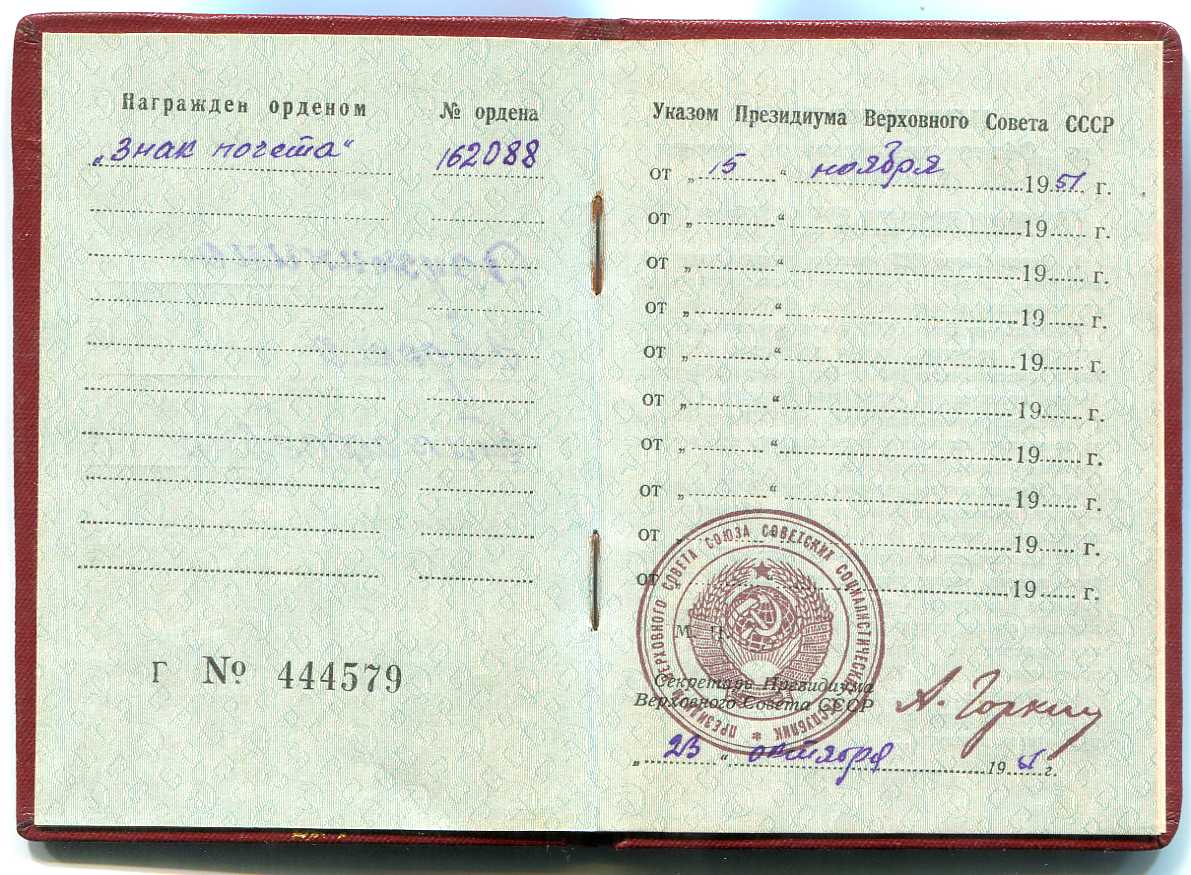 Награжден орденом № ордена
„Знак почета“ 162088
Г № 444579
Указом Президиума Верховного Совета СССР
от „15“ ноября 1951 г.
от „ “ 19 г.
от „ “ 19 г.
от „ “ 19 г.
от „ “ 19 г.
от „ “ 19 г.
от „ “ 19 г.
от „ “ 19 г.
от „ “ 19 г.
от „ “ 19 г.
ПРЕЗИДИУМ ВЕРХОВНОГО СОВЕТА СОЮЗА СОВЕТСКИХ СОЦИАЛИСТИЧЕСКИХ РЕСПУБЛИК
М. П.
Секретарь Президиума
Верховного Совета СССР
А. Горкин
„23“ октября 19 г.